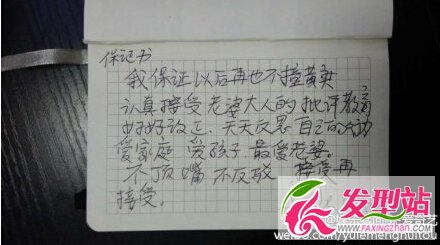 保证书
我保证以后再也不撞黄灯
认真接受老婆大人的批评教育
好好改正、天天反思自己的
爱家庭 爱孩子 最爱老婆。
不顶嘴 不反驳 接受再
接受。
发型站
WWW.FAXINGZHAN.COM
weibo.com/yuemenghuitou